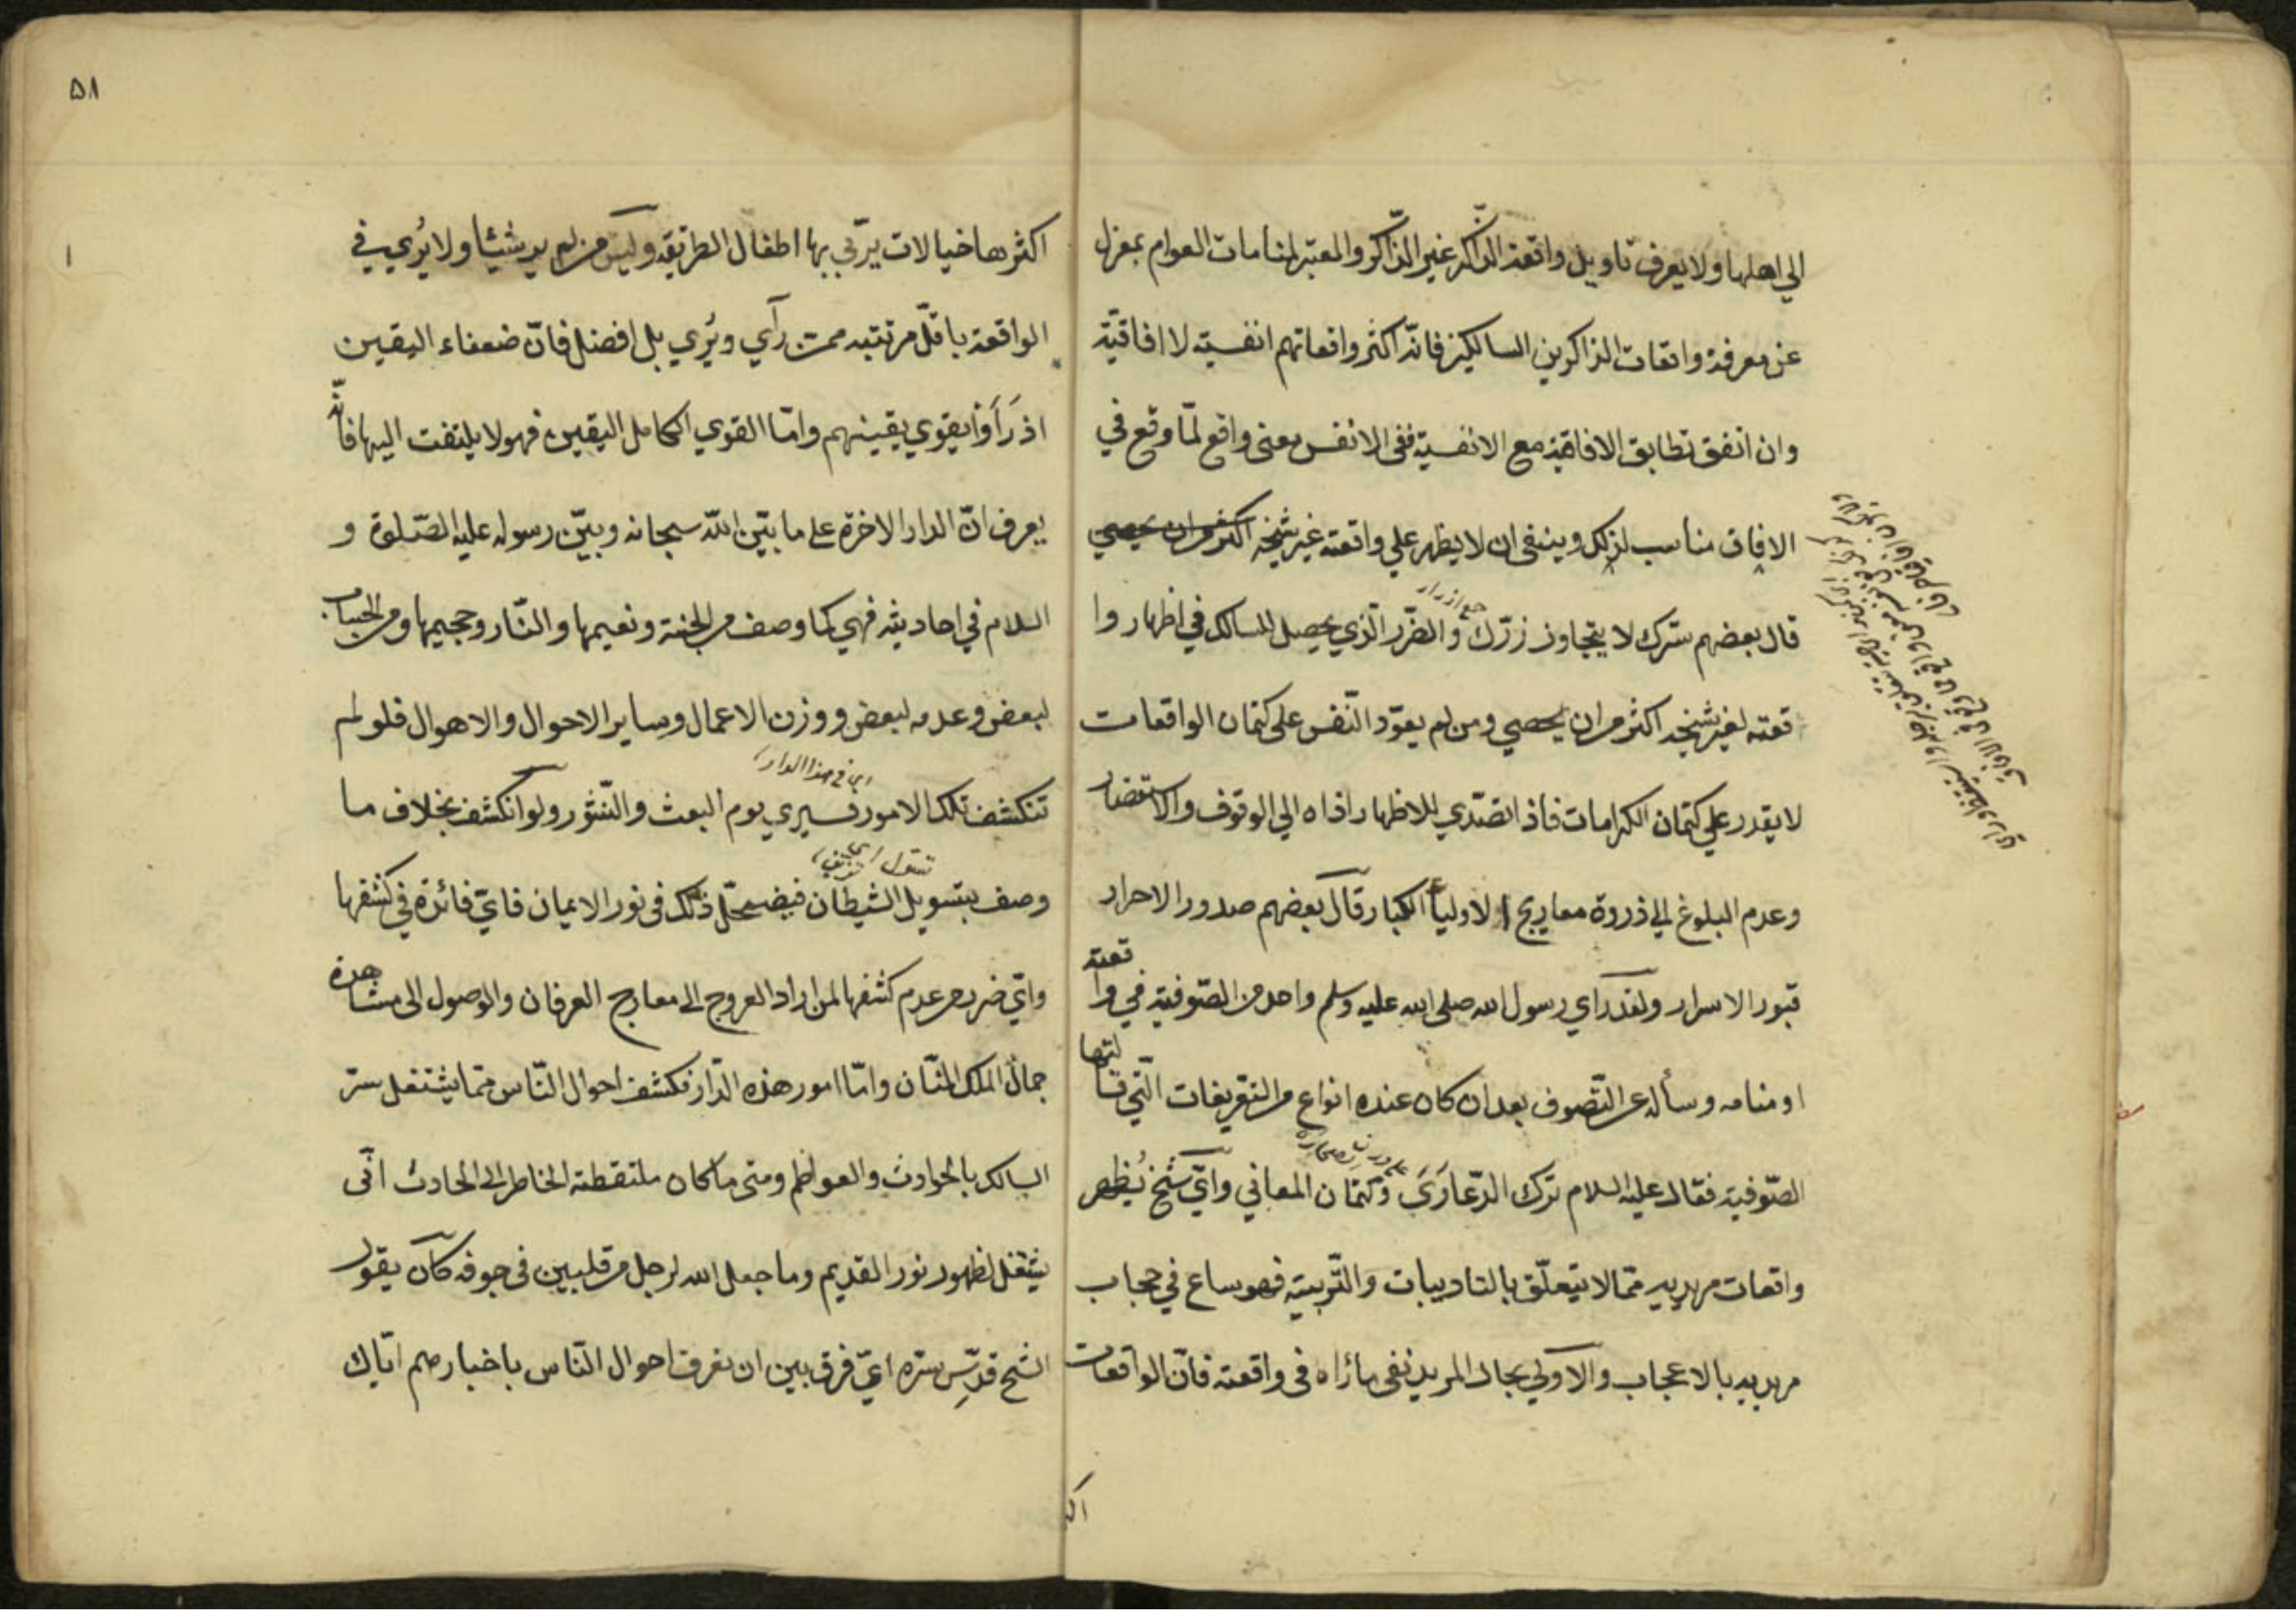 الي اهلها ولا يعرف تاويل واقعة الذّاكر غير الذّاكر والمعبّر لمنامات العوام بمعزل
عن معرفة واقعات الذاكرين السالكين فانّ اكثر واقعاتهم انفسية لا افاقيّة
وان اتفق تطابق الافاقية مع الانفسية ففي الانفس معنى واقع لمّا وقع في
الافاق مناسب لذلك وينبغي ان لا يظهر علي واقعته غير شيخه اكثر من ان يحصي
قال بعضهم سرّك لا يتجاوز زرّك والضّرر الّذي يحصل للسالك في اظهار وا
جمع ازرار
قعته لغير شيخه اكثر من ان يحصي ومن لم يعوّد النّفس على كتمان الواقعات
لا يقدر علي كتمان الكرامات فاذا تصّدي للاظهار اذاه الي الوقوف والاقتضار
وعدم البلوغ الي ذروة معاريج الاولياء الكبار قال بعضهم صدور الاحرار
قبور الاسرار ولقد رآي رسول الله صلى الله عليه وسلم واحد من الصّوفية في وا
قعته
او منامه وسأله عن التّصوف بعد ان كان عنده انواع من التعريفات الّتي قا
لتها
الصّوفية فقال عليه السلام ترك الدّعاوَى وكتمان المعاني وايّ شيخ يُظهر
واقعات مريديه ممّا لا يتعلّق بالتاديبات والتّربية فهو ساع في حجاب
مريديه بالاعجاب والاولي بحال المريد نفي ما رٱه في واقعته فانّ الواقعات
اكثر
٥٨
اكثرها خيالات يربّي بها اطفال الطريقة وليس من لم ير شيئا ولا يُري في
الواقعة باقلّ مرتبة ممن رآي ويُري بل افضل فانّ ضعفاء اليقين
اذ رَاَوْا يقوي يقينهم وامّا القوي الكامل اليقين فهو لا يلتفت اليها فانّه
يعرف انّ الدار الاخرة على ما بيّن الله سبحانه وبيّن رسوله عليه الصّلوة و
السلام في احاديثه فهي كما وصف من الجنة ونعيمها والنّار وجحيمها ومن الحساب
لبعض وعدمه لبعض ووزن الاعمال وساير الاحوال والاهوال فلو لم
اي في هذا الدار
تنكشف تلك الامور فسيري يوم البعث والنّشور ولو انكشف بخلاف ما
وصف بتسويل الشيطان فيضمحلّ ذلك في نور الايمان فايّ فائدة في كشفها
وايّ ضرر من عدم كشفها لمن اراد العروج الى معارج العرفان والوصول الى مشاهدة
جمال الملك المنّان وامّا امور هذه الدّار فكشف احوال النّاس ممّا يشتغل سرّ
السالك بالحوادث والعوالم ومتى ما كان ملتقطة الخاطر الى الحادث انّى
يشتغل لظهور نور القديم وما جعل الله لرجل من قلبين في جوفه كان يقول
الشيخ قدّس سرّه ايّ فرق بين ان تعرف احوال النّاس باخبارهم ايّاك